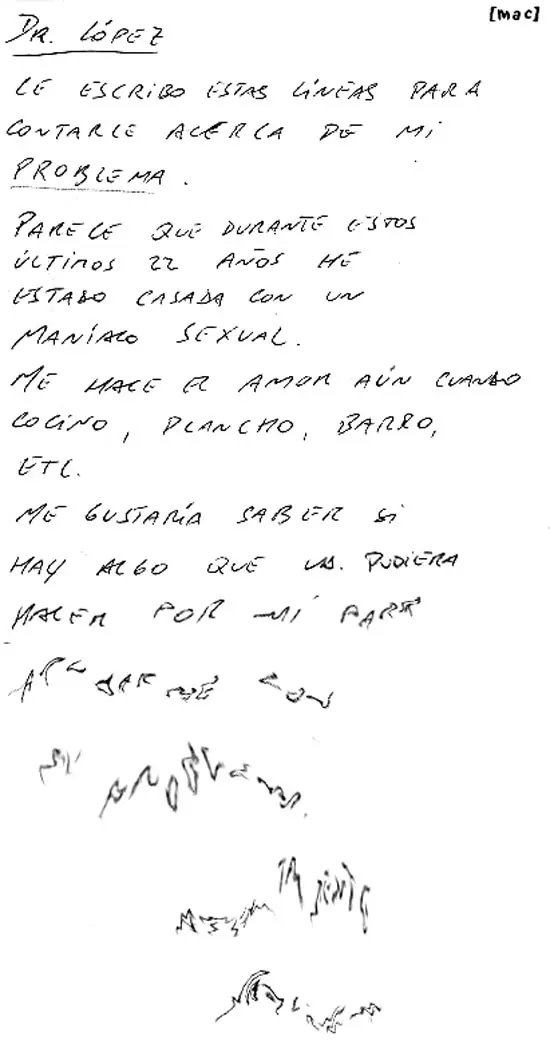 [mac]
DR. LÓPEZ
LE ESCRIBO ESTAS LÍNEAS PARA
CONTARLE ACERCA DE MI
PROBLEMA.
PARECE QUE DURANTE ESTOS
ÚLTIMOS 22 AÑOS HE
ESTADO CASADA CON UN
MANÍACO SEXUAL.
ME HACE EL AMOR AÚN CUANDO
COCINO, PLANCHO, BARRO,
ETC.
ME GUSTARÍA SABER SI
HAY ALGO QUE UD. PUDIERA
HACER POR MI PARA
CON
MI PROBLEMA.